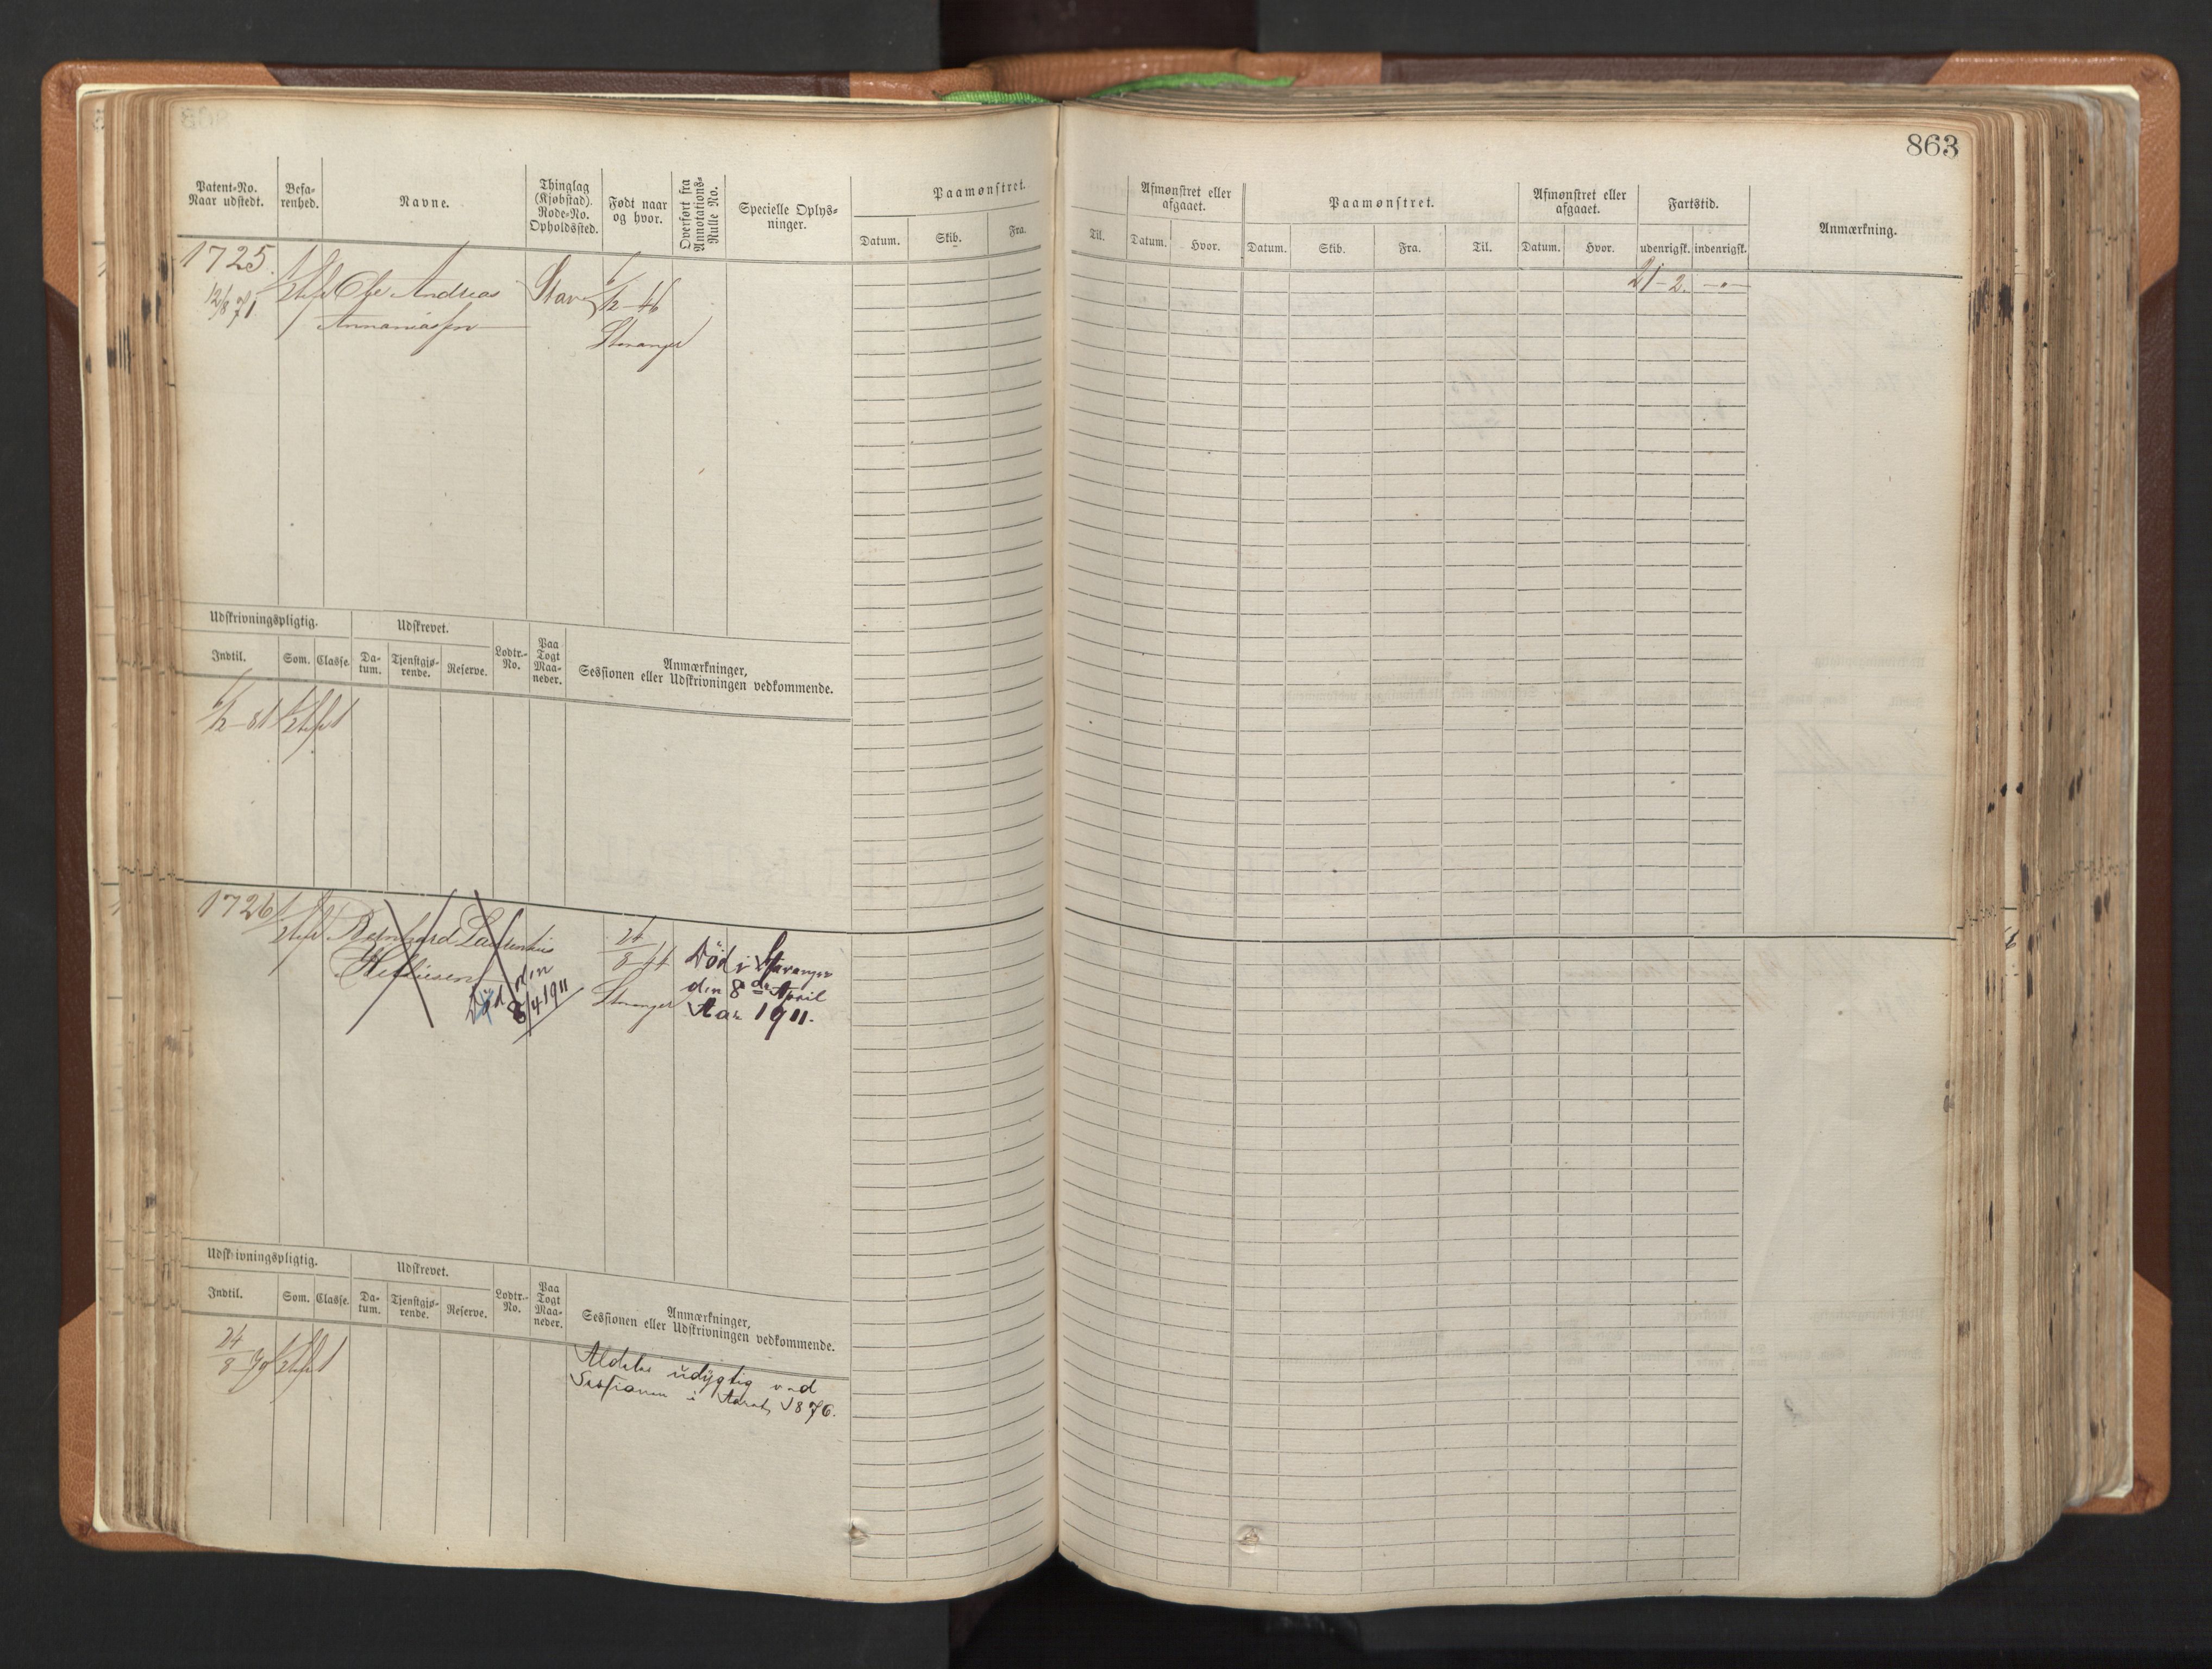 863
Patent-No. Naar udstedt.
Befa-renhed.
Navne.
Thinglag (Kjøbstad). Rode-No. Opholdssted.
Født naar og hvor.
Overført fra Annotations-Rulle No.
Specielle Oplys-ninger.
Paamønstret.
Datum. Skib. Fra. Til.
Afmønstret eller afgaaet.
Datum. Hvor.
Paamønstret.
Datum. Skib. Fra. Til.
Afmønstret eller afgaaet.
Datum. Hvor.
Fartstid.
udenrigsk. indenrigsk.
Anmærkning.
1725.
12/8 71
Ole Andreas
Stav
6/12-46
Stavanger
21-2.
Udskrivningspligtig.
Udskrevet.
Indtil. Som. Classe. Da-tum. Tjenstgjø-rende. Reserve. Lodtr.-No. Paa Togt Maa-neder.
Anmærkninger,
Sessionen eller Udskrivningen vedkommende.
6/12-81
1726
Bernhard Laurentius
Død den
8/4 1911
24/8 44
Stavanger
Død i Stavanger
den 8de April
Aar 1911.
Udskrivningspligtig.
Udskrevet.
Indtil. Som. Classe. Da-tum. Tjenstgjø-rende. Reserve. Lodtr.-No. Paa Togt Maa-neder.
Anmærkninger,
Sessionen eller Udskrivningen vedkommende.
24/8 79
Aldeles udygtig ved
Sessionen i Aaret 1876.